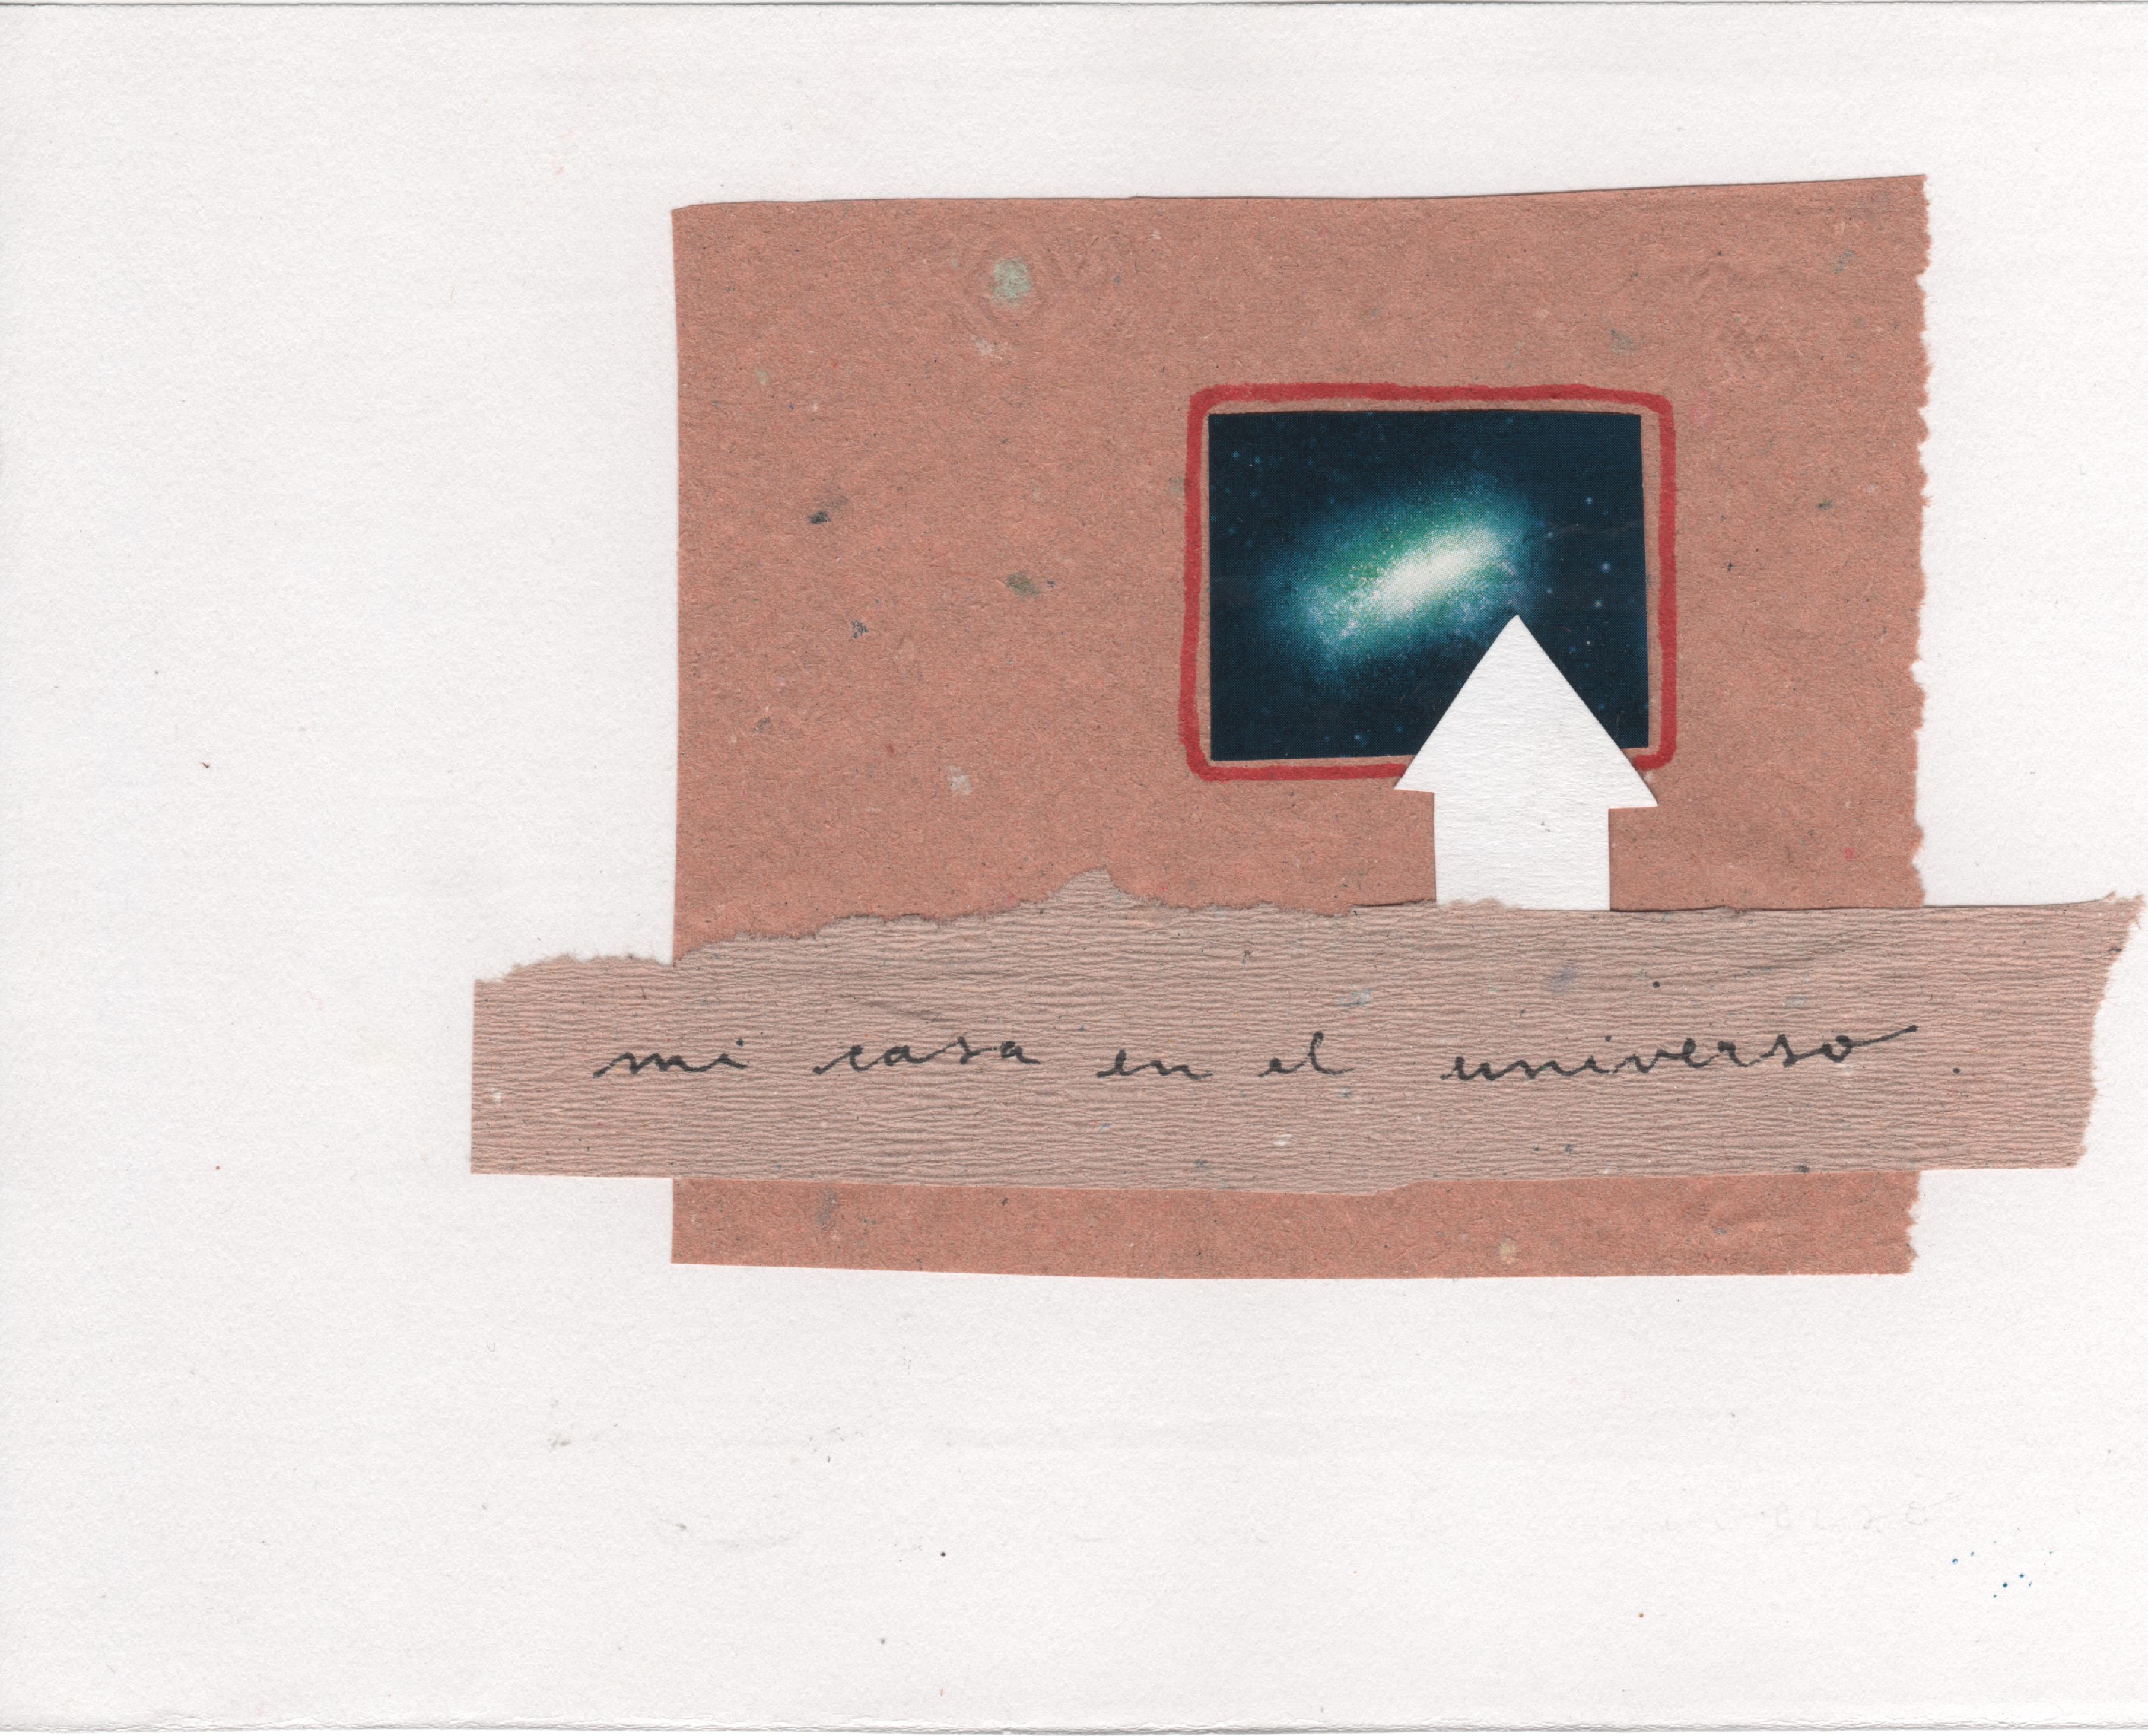 mi casa en el universo.